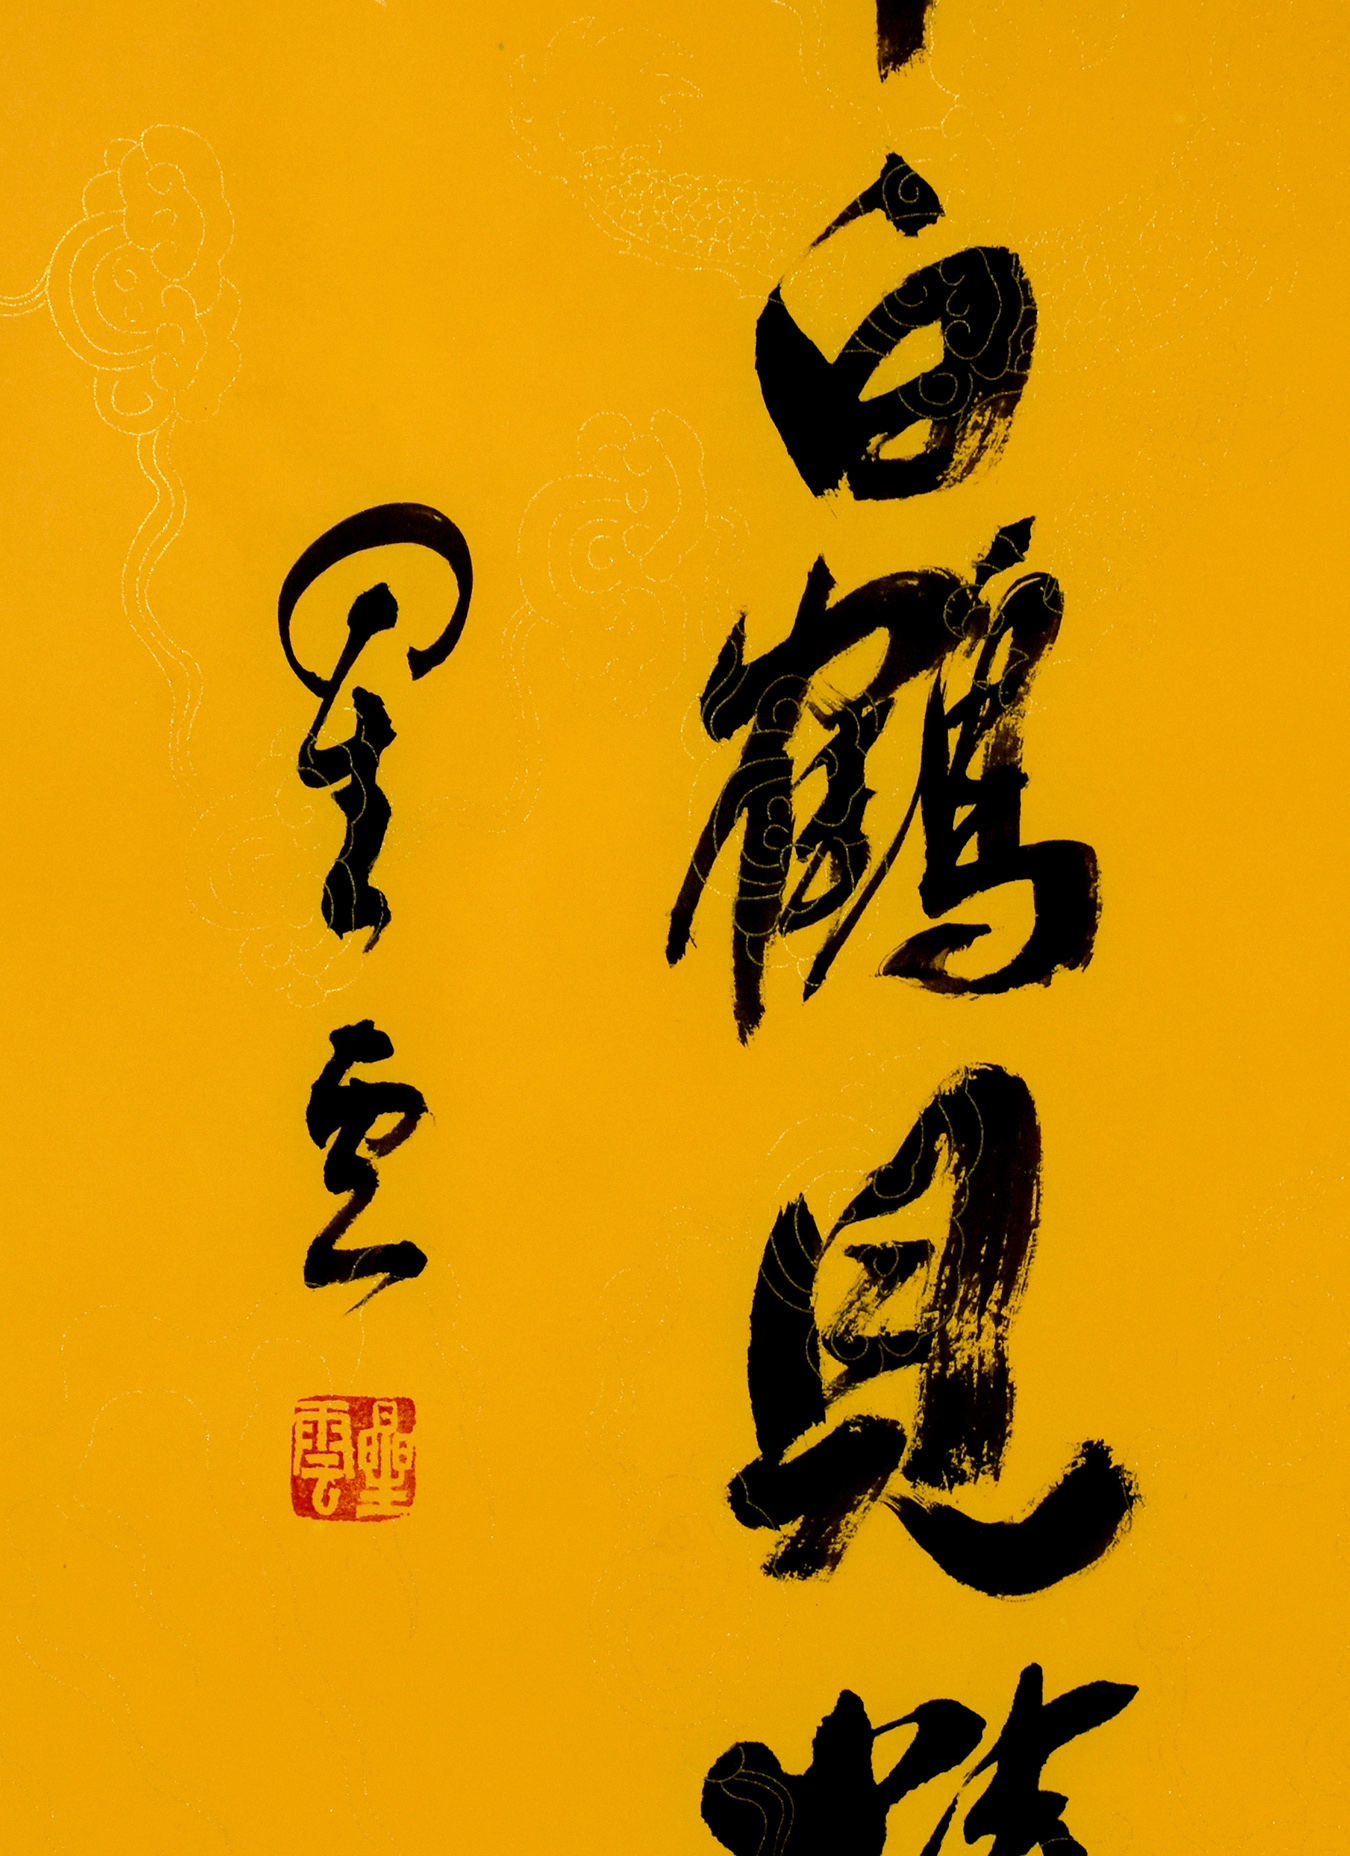 白鶴見
星雲
星雲